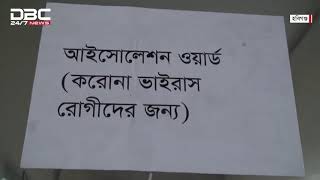 DBC
24/7 NEWS
হবিগঞ্জ
আইসোলেশন ওয়ার্ড
(করোনা ভাইরাস
রোগীদের জন্য)